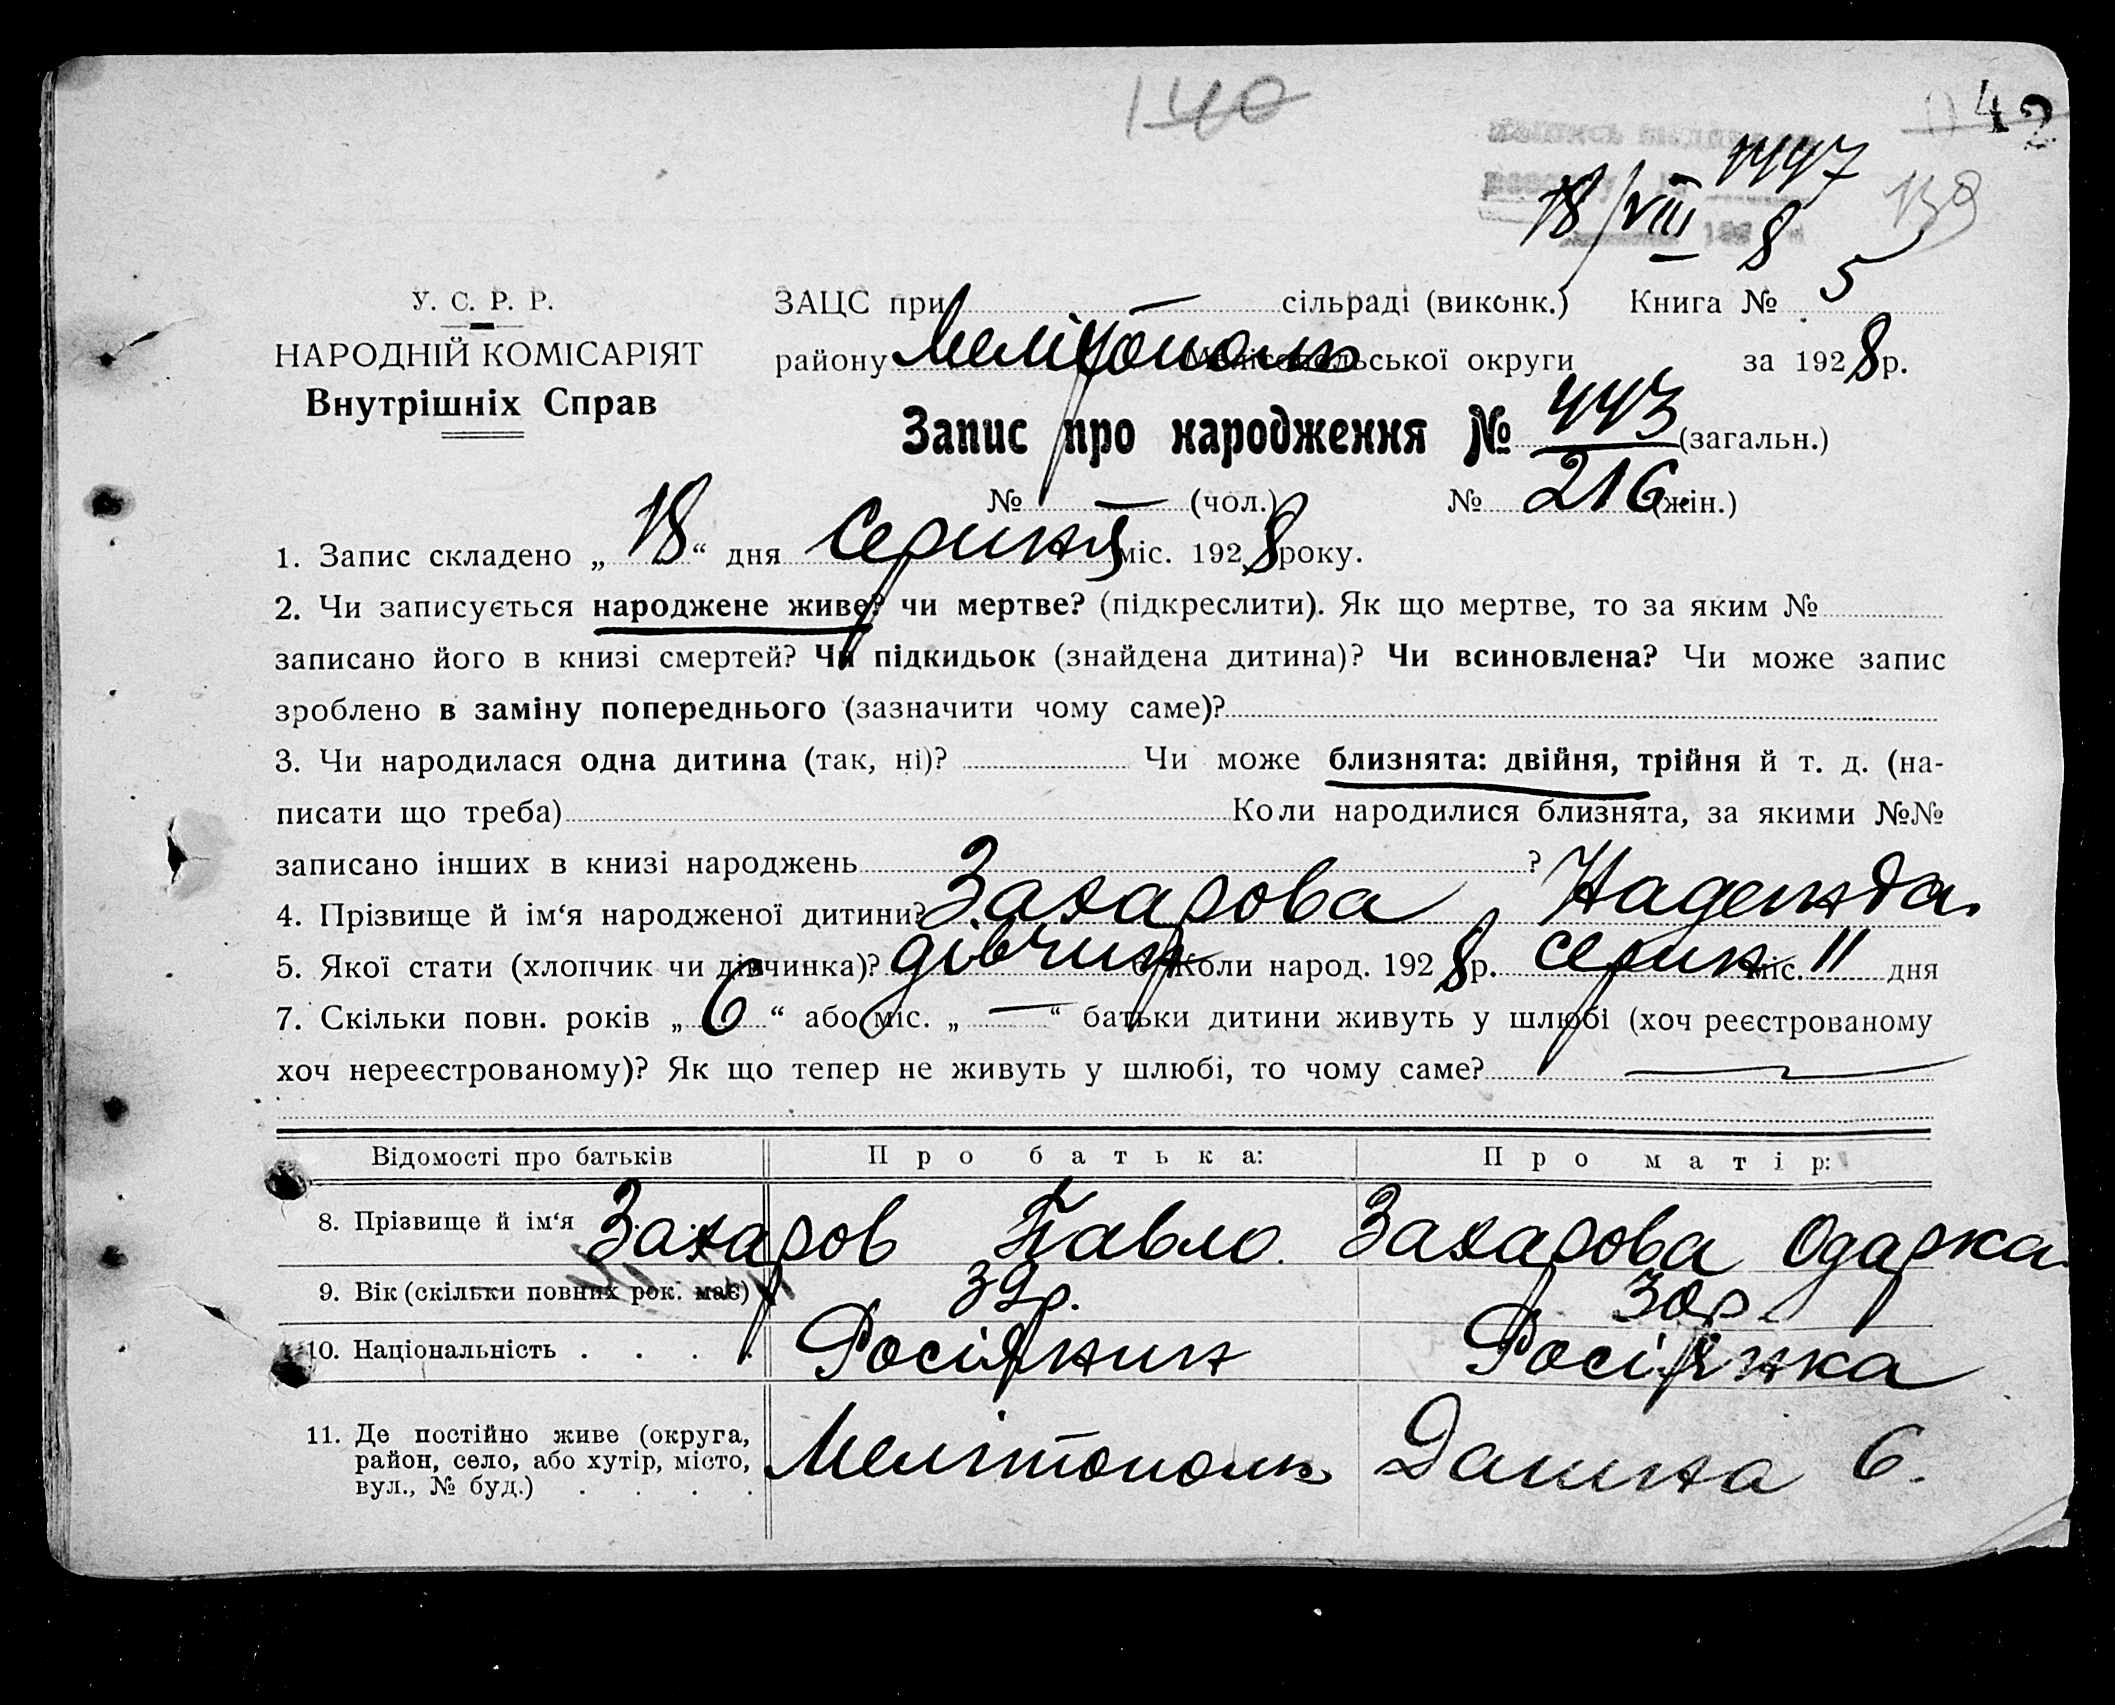 140
42
1447
18/VIII 8
139
У. С. Р. Р.
НАРОДНІЙ КОМІСАРІЯТ
Внутрішніх Справ
ЗАЦС при — сільраді (виконк.) Книга № 5
району Мелітополь Мелітопольської округи за 1928 р.
Запис про народження № 443 (загальн.)
№ — (чол.) № 216 (жін.)
1. Запис складено „18“ дня Серпня міс. 1928 року.
2. Чи записується народжене живе? чи мертве? (підкреслити). Як що мертве, то за яким №
записано його в книзі смертей? Чи підкидьок (знайдена дитина)? Чи всиновлена? Чи може запис
зроблено в заміну попереднього (зазначити чому саме)?
3. Чи народилася одна дитина (так, ні)? Чи може близнята: двійня, трійня й т. д. (на-
писати що треба) Коли народилися близнята, за якими №№
записано інших в книзі народжень ?
4. Прізвище й ім‘я народженої дитини? Захарова Надежда
5. Якої стати (хлопчик чи дівчинка)? дівчин 6. Коли народ. 1928 р. серпн міс. 11 дня
7. Скільки повн. років „6“ або міс. „—“ батьки дитини живуть у шлюбі (хоч реєстрованому
хоч нереєстрованому)? Як що тепер не живуть у шлюбі, то чому саме? —
Відомості про батьків Про батька: Про матір:
8. Прізвище й ім‘я Захаров Павло Захарова Одарка
9. Вік (скільки повних рок. має) 32р. 30р.
10. Національність . . . . Росіянин Росіянка
11. Де постійно живе (округа,
район, село, або хутір, місто,
вул., № буд.) . . . . Мелітополь 6.